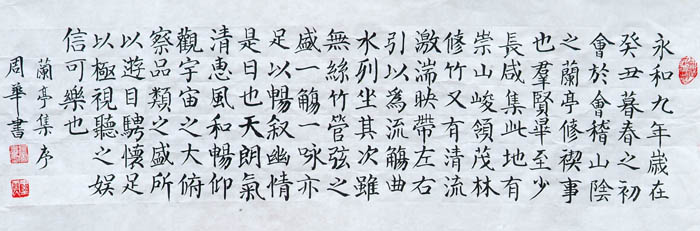 永和九年歲在
癸丑暮春之初
會於會稽山陰
之蘭亭修禊事
也羣賢畢至少
長咸集此地有
崇山峻領茂林
修竹又有清流
激湍映帶左右
引以為流觴曲
水列坐其次雖
無絲竹管弦之
盛一觴一咏亦
足以暢叙幽情
是日也天朗氣
清惠風和暢仰
觀宇宙之大俯
察品類之盛所
以遊目騁懷足
以極視聽之娛
信可樂也
蘭亭集序
周華書